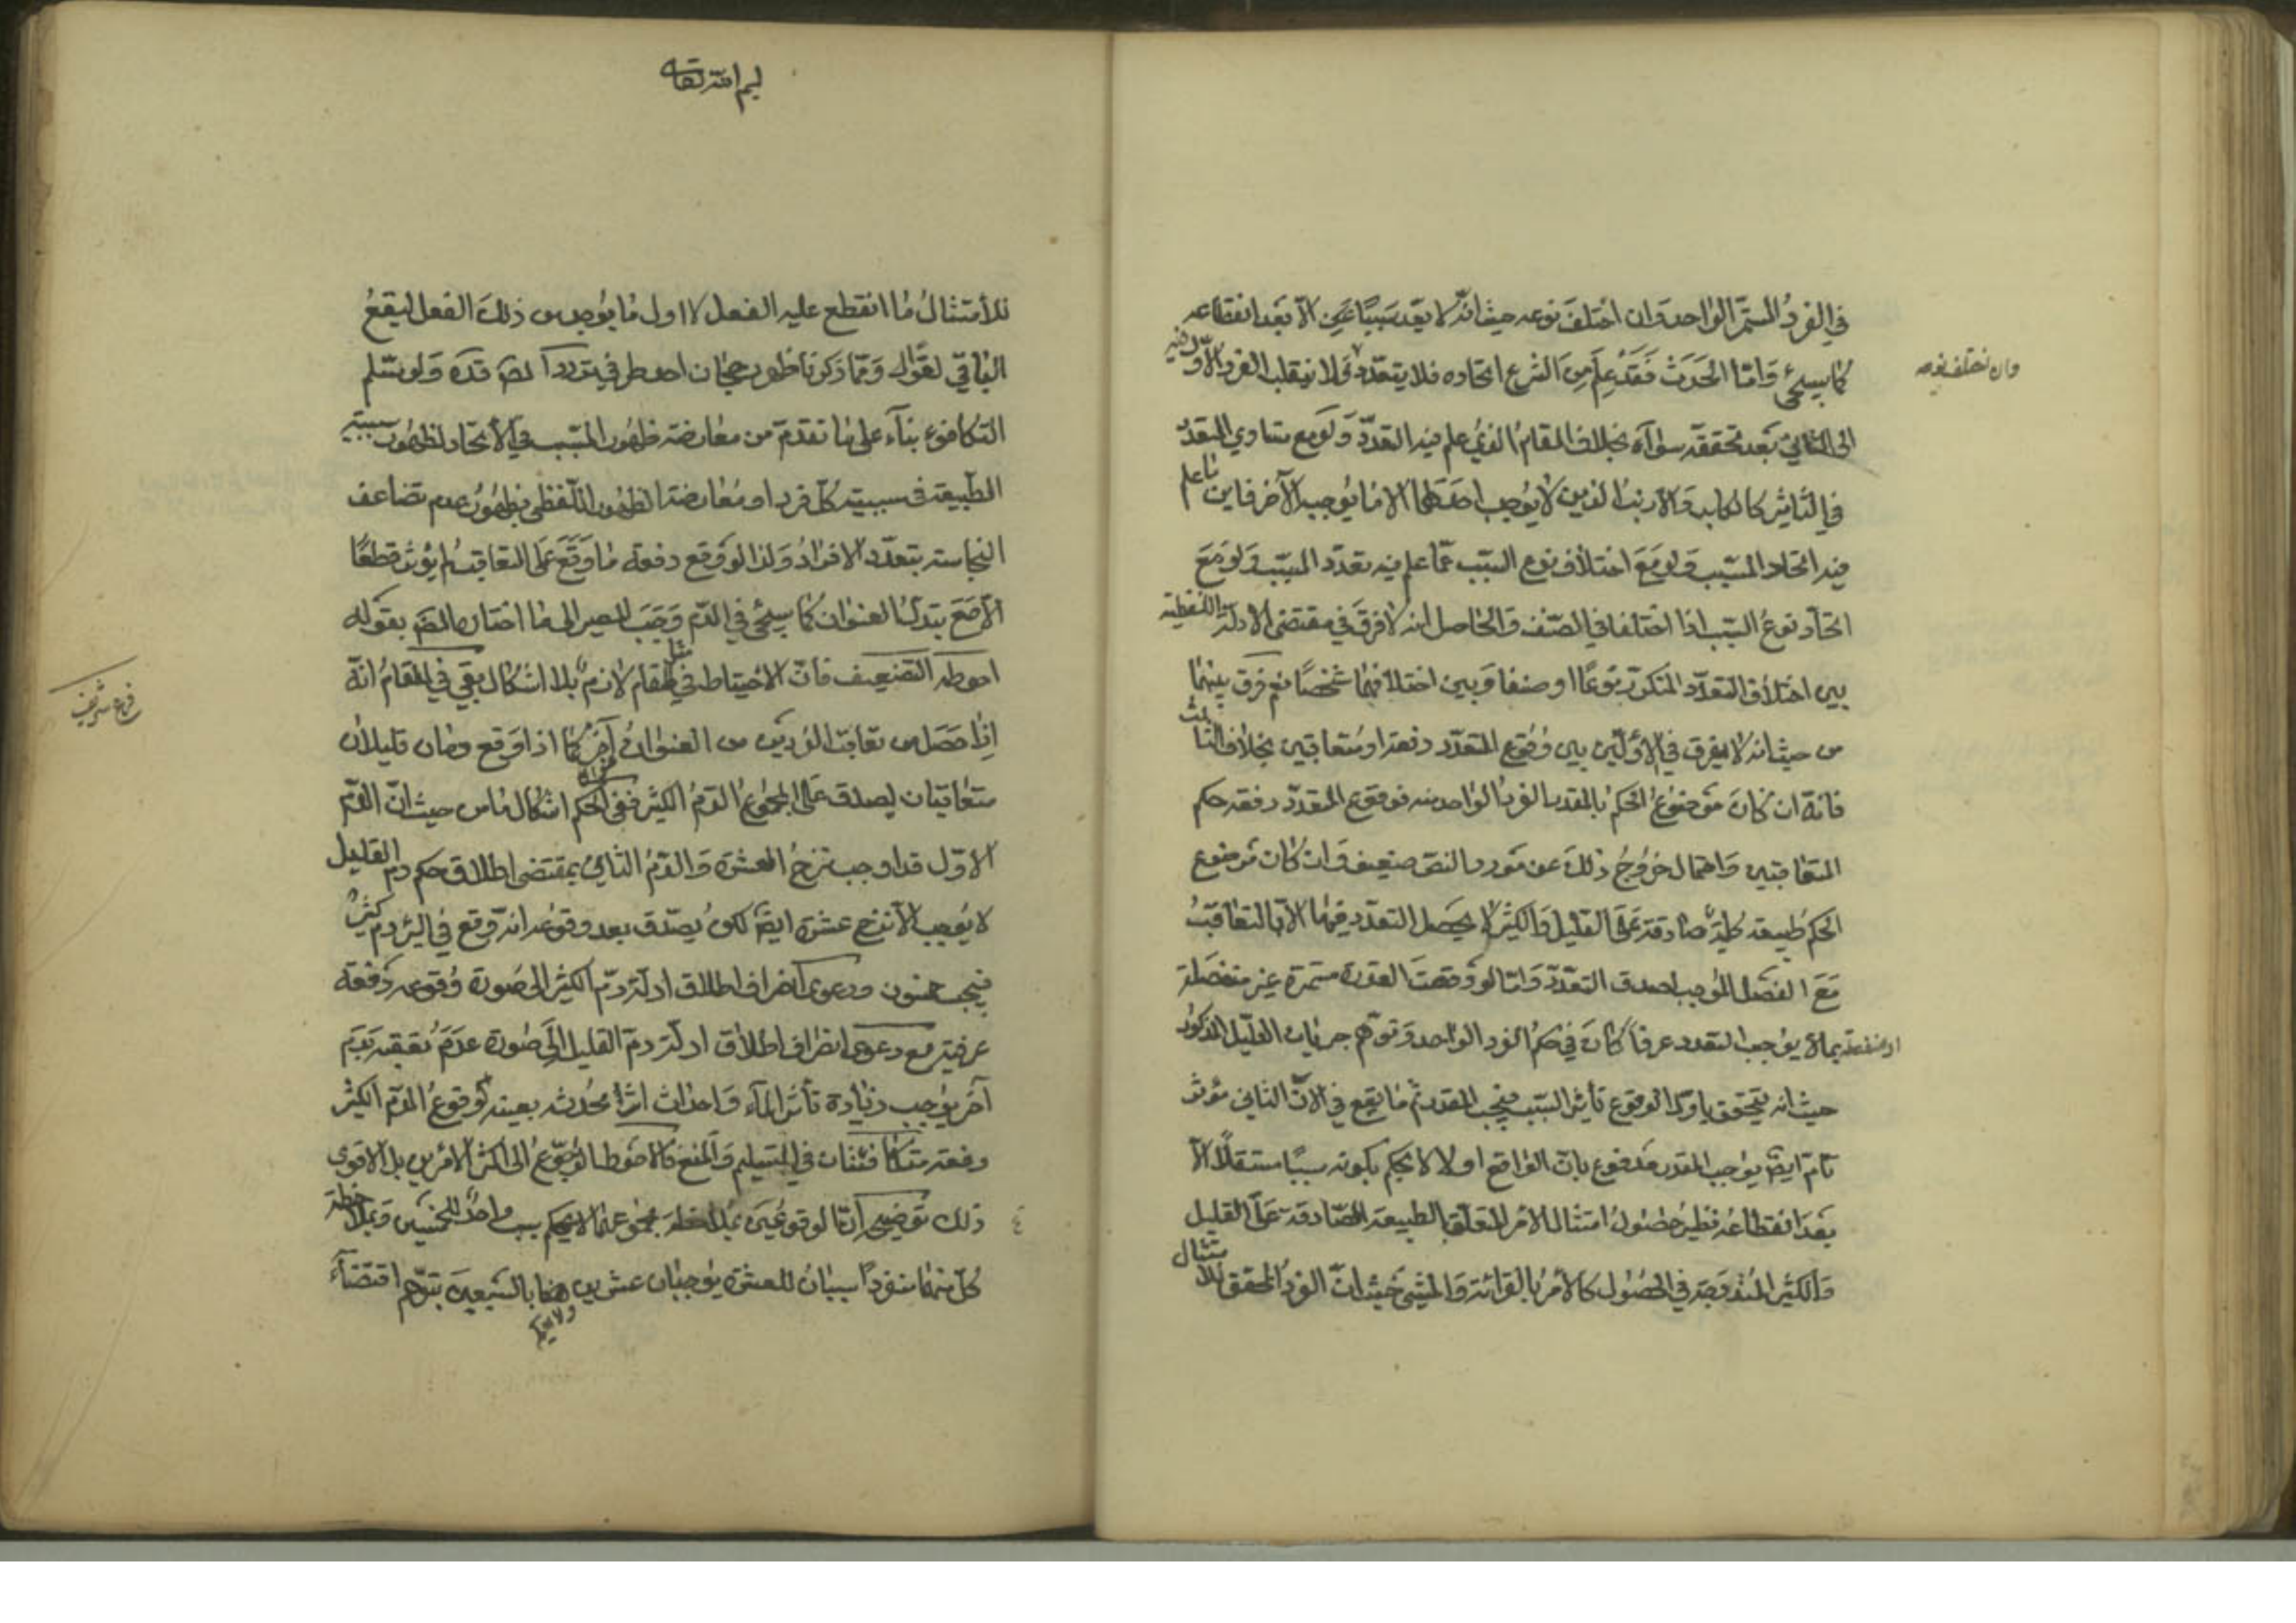 في الفرد المستمر الواحد وان اختلف نوعه حيث انه لا يعد سببا غيره الا بعد انقطاعه
كما سيجئ واما الحدث فقد علم من الشرع اتحاده فلا يتعدد ولا ينقلب الفرد الاول فيه
وان اختلف نوعه
الى الثاني بعد تحققه سواء بخلاف المقام الذي علم فيه التعدد ولو مع تساوي المقدر
في التأثير كالكلب والارنب الذين لا يوجب احدهما الا ما يوجبه الآخر فاين ما علم
فيه اتحاد المسبب ولو مع اختلاف نوع السبب عما علم فيه تعدد المسبب ولو مع
اتحاد نوع السبب اذا اختلفا في الصنف والحاصل انه لا فرق في مقتضى الادلة اللفظية
بين اختلاف المتعدد المتكرر نوعا او صنفا وبين اختلافهما شخصا نعم فرق بينهما
من حيث انه لا يفرق في الاولين بين وقوع المتعدد دفعة او متعاقبين بخلاف الثالث
فانه ان كان موضوع الحكم بالمقدر الفرد الواحد منه فوقوع المتعدد دفعة حكم
المتعاقبين واحتمال خروج ذلك عن مورد النص ضعيف وان كان موضوع
الحكم طبيعة كلية صادقة على القليل والكثير لا يحصل التعدد فيهما الا بالتعاقب
مع الفصل الموجب لصدق التعدد واما لو وقعت العذرة مستمرة غير منفصلة
او منفصلة بما لا يوجب التعدد عرفا كان في حكم الفرد الواحد وتوهم جريان التعليل المذكور
حيث انه يتحقق باول الوقوع تأثير السبب فيجب المقدر ثم ما يقع في الآن الثاني مؤثر
تام ايضا يوجب المقدر مدفوع بان الواقع اولا لا يحكم بكونه سببا مستقلا الا
بعد انقطاعه نظير حصول امتثال الامر المتعلق بالطبيعة الصادقة على القليل
والكثير المتدرجة في الحصول كالامر بالقرائة والمشي حيث ان الفرد المحقق للامتثال
ليم الله تعالى
للامتثال ما انقطع عليه الفعل لا اول ما يوجد من ذلك الفعل ليقع
الباقي لغوا ومما ذكرنا ظهر رجحان احوط في تردد المص قده ولو سلم
التكافوء بناء على ما تقدم من معارضة ظهور المسبب في الاتحاد لظهور سببية
الطبيعة في سببية كل فرد او معارضة الظهور اللفظي بظهور عدم تضاعف
النجاسة بتعدد الافراد ولذا لو وقع دفعة ما وقع على التعاقب لم يؤثر قطعا
الا مع تبدل العنوان كما سيجئ في الدم وجب المصير الى ما اختاره المص بقوله
احوطه التضعيف فان الاحتياط في مثل المقام لازم بلا اشكال بقي في المقام انه
فرع شريف
اذا حصل من تعاقب الفردين من العنوان آخر كما اذا وقع دمان قليلان
متعاقبان ليصدق على المجموع الدم الكثير ففي الحكم اشكال ما من حيث ان الدم
الاول قد اوجب نزح العشرة والدم الثاني بمقتضى اطلاق حكم دم القليل
لا يوجب الا نزح عشرة ايضا لكن يصدق بعد وقوعه انه وقع في البئر دم كثير
فيجب خمسون ودعوى انصراف اطلاق ادلة دم الكثير الى صورة وقوعه دفعة
عرفية مع دعوى انصراف اطلاق ادلة دم القليل الى صورة عدم تعقبه بدم
آخر يوجب زيادة تأثر الماء واحداث اثر يحدثه بعينه وقوع الدم الكثير
دفعة متكافئتان في التسليم والمنع فالاحوط الرجوع الى اكثر الامرين بل الاقوى
ذلك توضيحه انا لو فرضنا بملاحظة مجموعهما لا يحكم بسبب واحد للخمسين وبملاحظة
كل منهما منفردا سببان للعشرة يوجبان عشرين ولا يحكم هنا بالسببين بتوهم اقتضاء